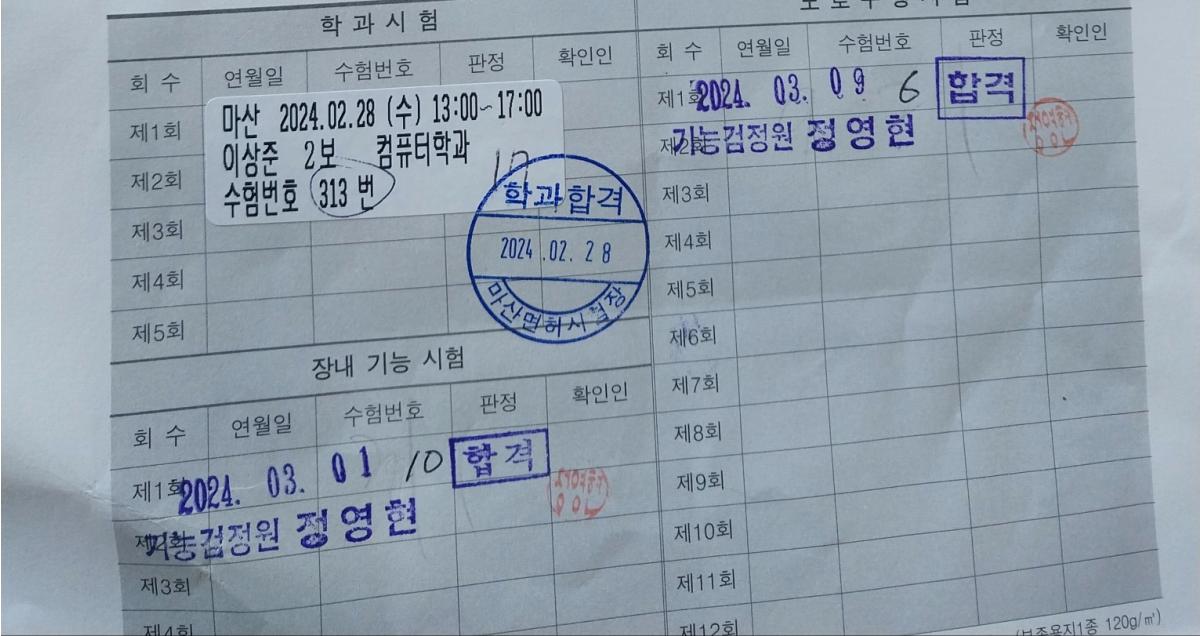 학과시험
회 수 연월일 수험번호 판정 확인인
마산 2024.02.28 (수) 13:00~17:00
이상준 2보 컴퓨터학과
수험번호 313 번
제1회
제2회
제3회
제4회
제5회
학과합격
2024.02.28
마산면허시험장
장내 기능 시험
회 수 연월일 수험번호 판정 확인인
제1회 2024. 03. 01 10 합격
기능검정원 정영현
제3회
제4회
회 수 연월일 수험번호 판정 확인인
제1회 2024. 03. 09 6 합격
제2회 기능검정원 정영현
제3회
제4회
제5회
제6회
제7회
제8회
제9회
제10회
제11회
제12회
(보존용지1종 120g/㎡)